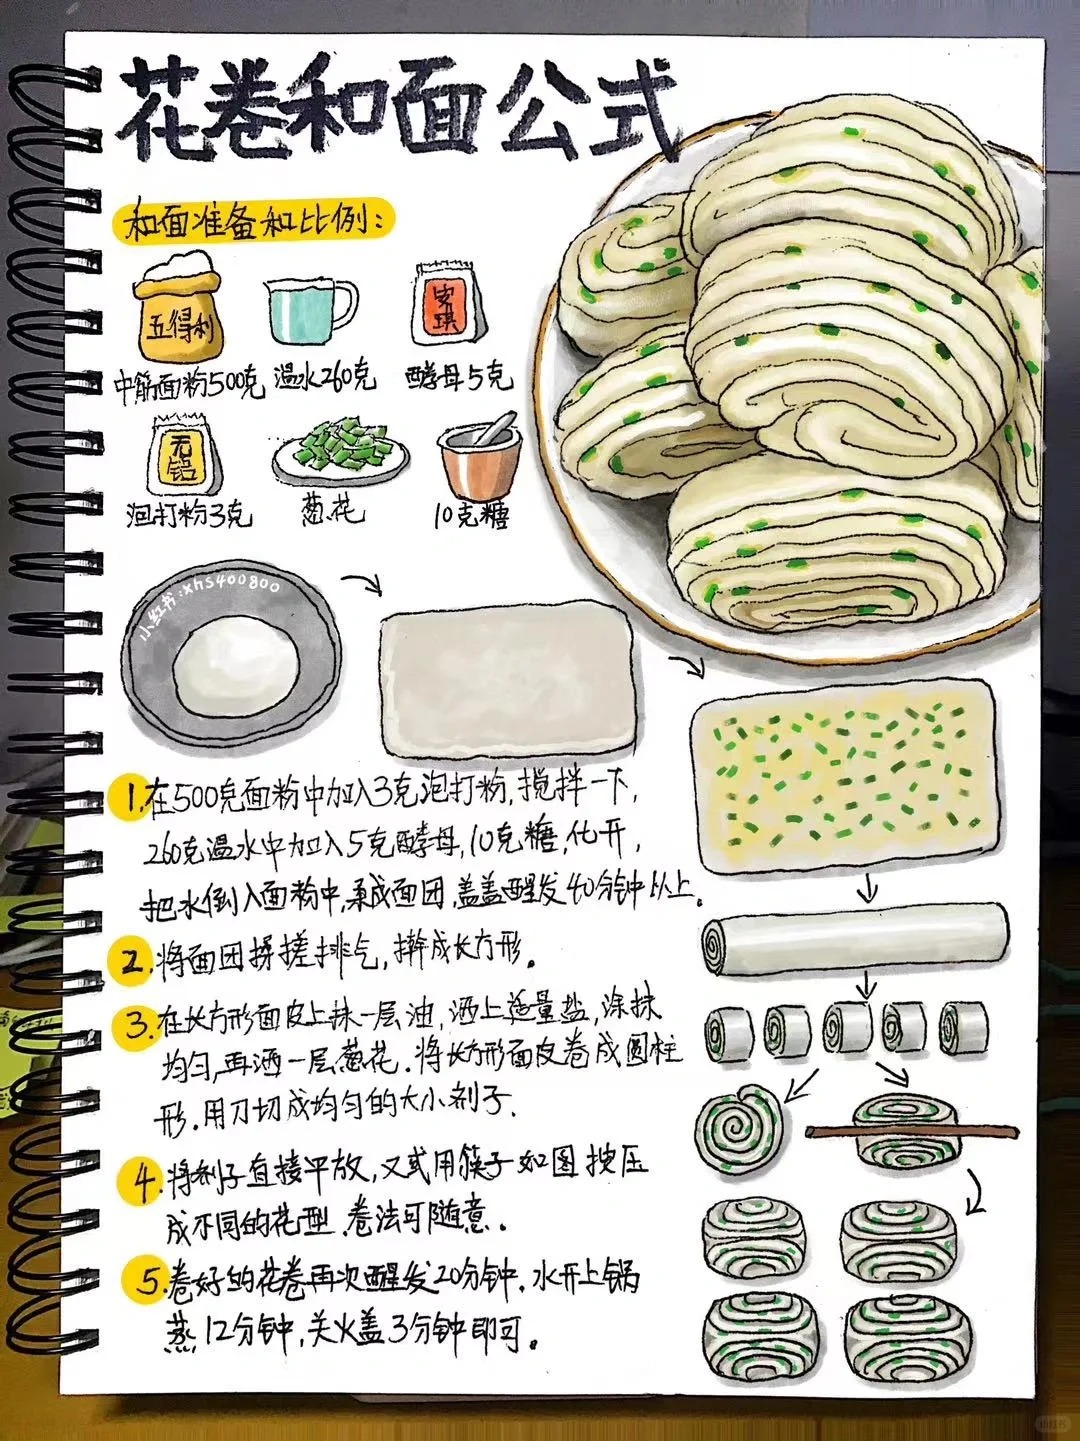 花卷和面公式
和面准备和比例:
五得利
安琪
中筋面粉500克 温水260克 酵母5克
无铝
泡打粉3克 葱花 10克糖
小红书:xhs400800
1.在500克面粉中加入3克泡打粉,搅拌一下,
260克温水中加入5克酵母,10克糖,化开,
把水倒入面粉中,揉成面团,盖盖醒发40分钟以上.
2.将面团揉搓排气,擀成长方形。
3.在长方形面皮上抹一层油,洒上适量盐,涂抹
均匀,再洒一层葱花.将长方形面皮卷成圆柱
形.用刀切成均匀的大小剂子.
4.将剂子直接平放,又或用筷子如图按压
成不同的花型.卷法可随意.
5.卷好的花卷再次醒发20分钟.水开上锅
蒸12分钟,关火盖3分钟即可。